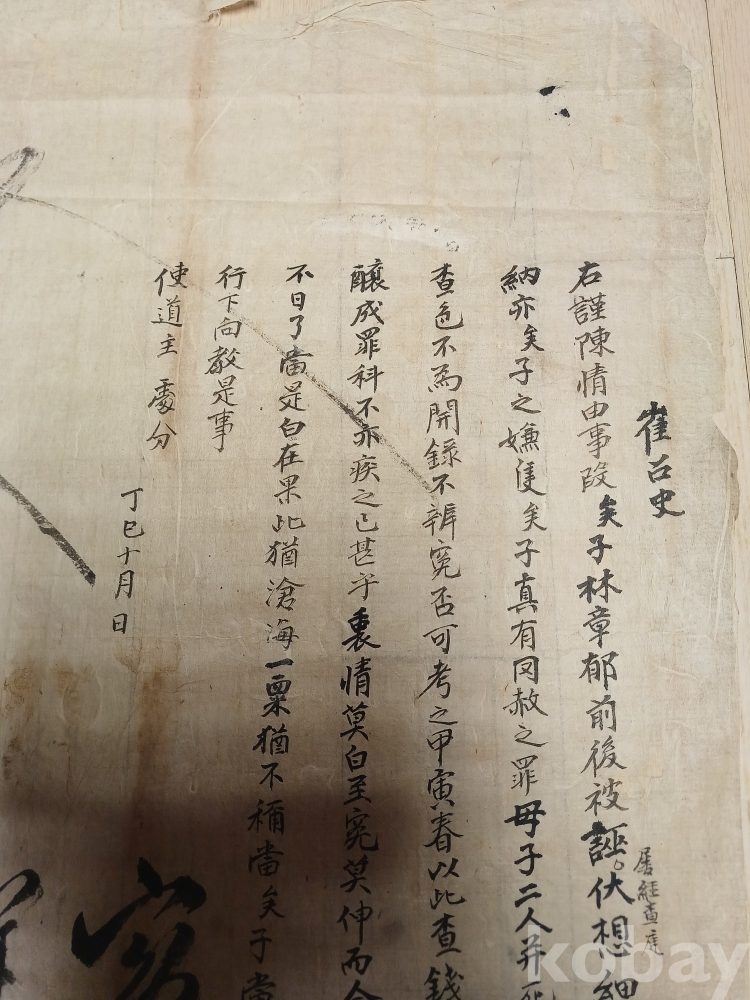 崔召史
右謹陳情由事段矣子林章郁前後被誣伏想細
屢經查庭
納亦矣子之嫌隻矣子真有罔赦之罪母子二人并死
查色不爲開錄不辨寃否可考之甲寅春以此查錢
釀成罪科不亦疾之已甚乎裏情莫白至寃莫伸而今
不日了當是白在果此猶滄海一粟猶不稱當矣子當
行下向敎是事
使道主 處分
丁巳十月 日
kobay